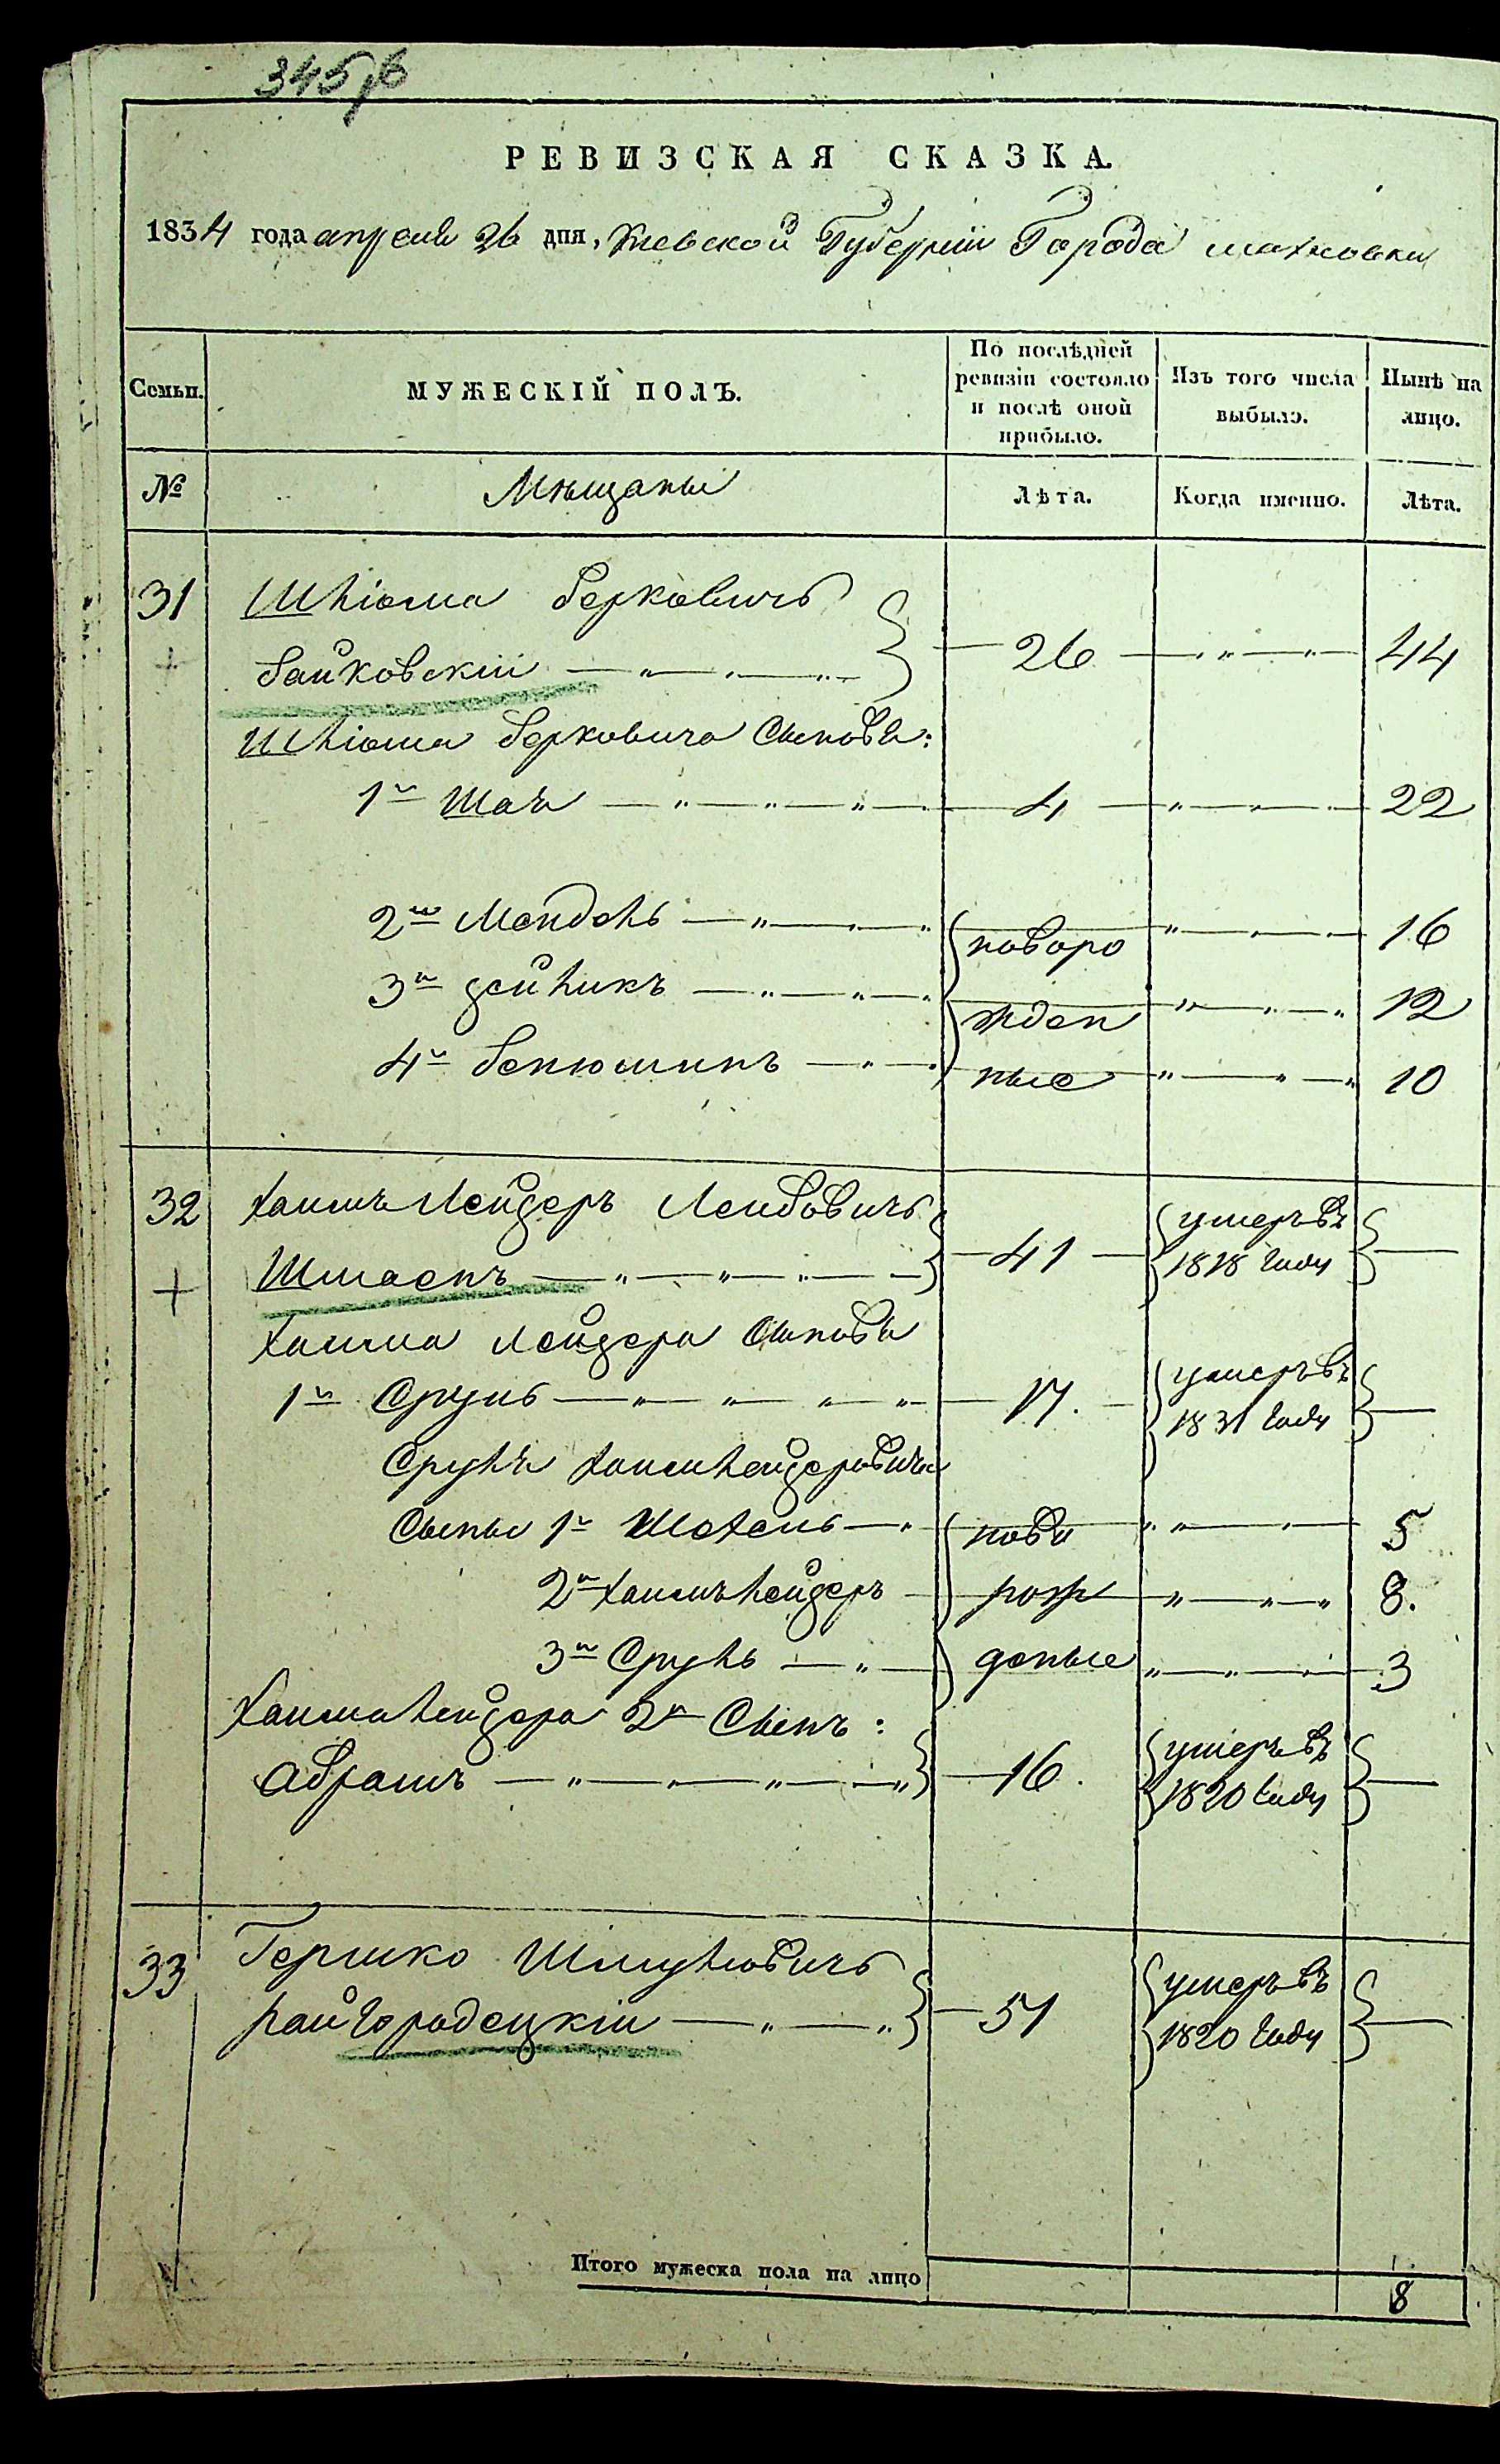 345 об
РЕВИЗСКАЯ СКАЗКА.
1834 года апреля 26 дня, Киевской Губернии Города Махновки
Семьи. МУЖЕСКІЙ ПОЛЪ. По послѣдней ревизіи состояло и послѣ оной прибыло. Изъ того числа выбыло. Нынѣ на лицо.
№ Мѣщаны Лѣта. Когда именно. Лѣта.
31 Шліома Берковичъ
Байковскій 26 44
Шліома Берковича Сыновья:
1й Шая 4 22
2й Мендель новоро 16
3й Зейликъ жден 12
4й Бенюминъ ные 10
32 Хаимъ Лейзеръ Лейбовичъ 41 умеръ въ
Шмаенъ 1818 году
Хаима Лейзера Сыновья
1й Сруль 17. умеръ въ
1831 году
Сруля Хаимлейзеровича
Сыны 1й Шохель ново 5
2й Хаимъ Лейзеръ рож 8.
3й Сруль деные 3
Хаима Лейзера 2й Сынъ:
Абрамъ 16. умеръ въ
1820 году
33 Гершко Шмулювичъ
Райгородецкій 51 умеръ въ
1820 году
Итого мужеска пола на лицо 8